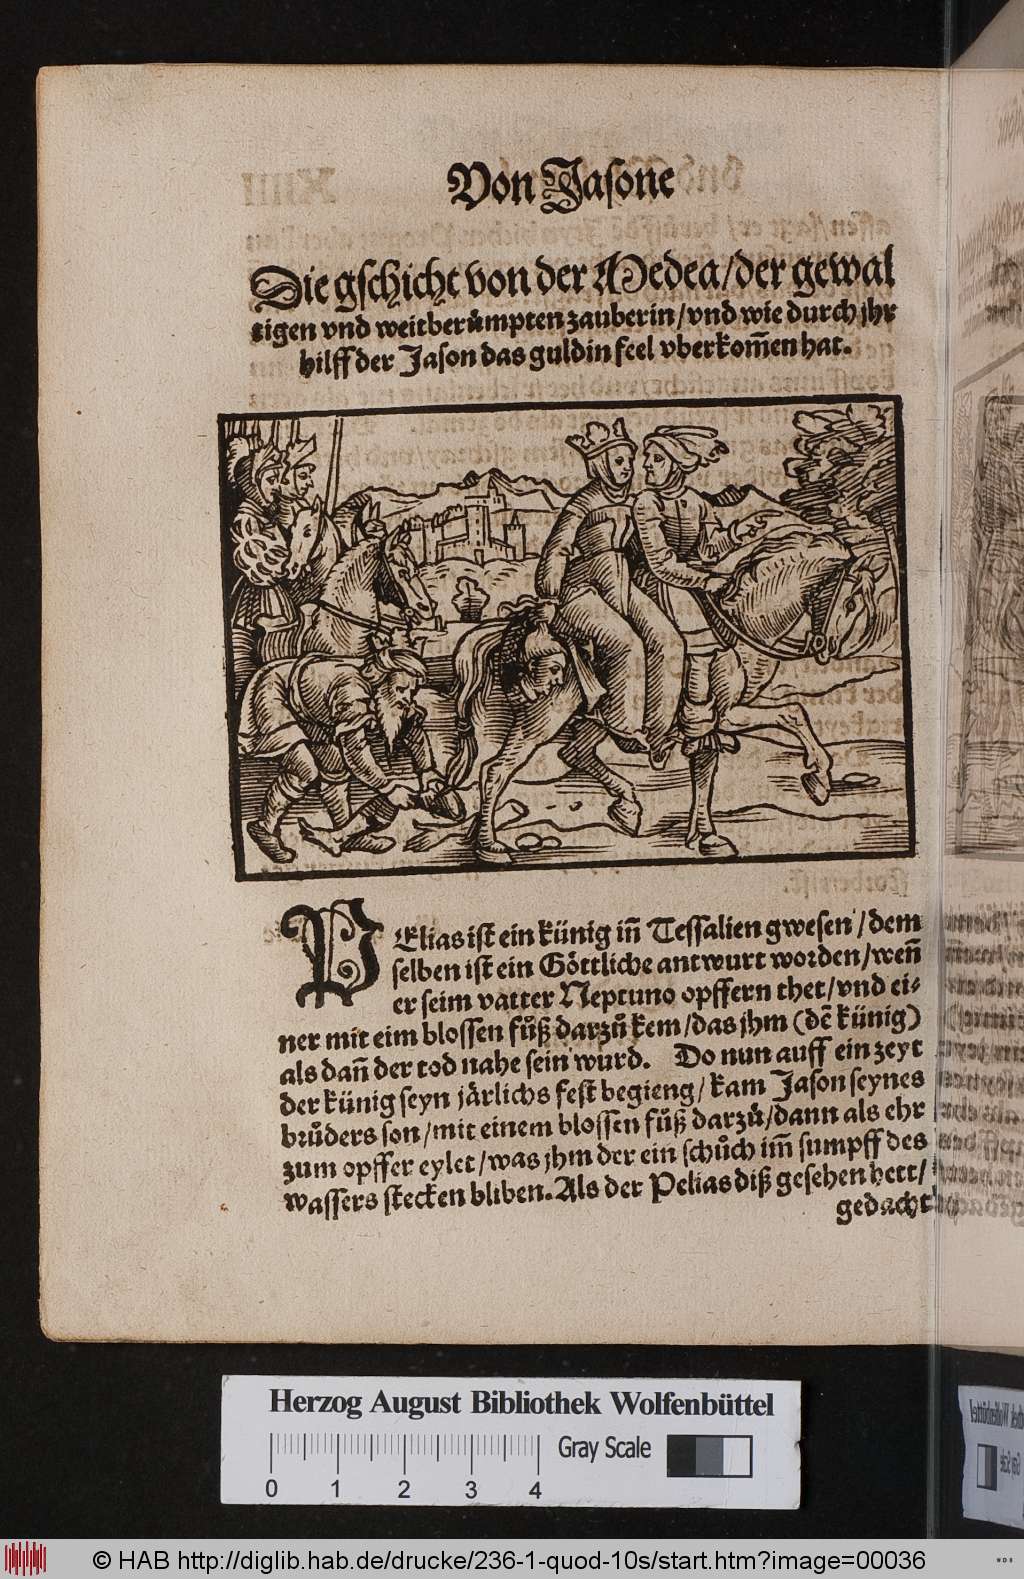 Von Jasone
Die gschicht von der Medea/der gewal
tigen vnd weitberůmpten zauberin/vnd wie durch jhr
hilff der Jason das guldin feel vberkom̃en hat.
PElias ist ein künig iñ Tessalien gwesen/dem
selben ist ein Göttliche antwurt worden/weñ
er seim vatter Neptuno opffern thet/vnd ei⸗
ner mit eim blossen fůß darzů kem/das jhm (dẽ künig)
als dañ der tod nahe sein wurd. Do nun auff ein zeyt
der künig seyn järlichs fest begieng/kam Jason seynes
brůders son/mit einem blossen fůß darzů/dann als ehr
zum opffer eylet/was jhm der ein schůch im̃ sumpff des
wassers stecken bliben. Als der Pelias diß gesehen hett/
gedacht
Herzog August Bibliothek Wolfenbüttel
Gray Scale
0 1 2 3 4
© HAB http://diglib.hab.de/drucke/236-1-quod-10s/start.htm?image=00036